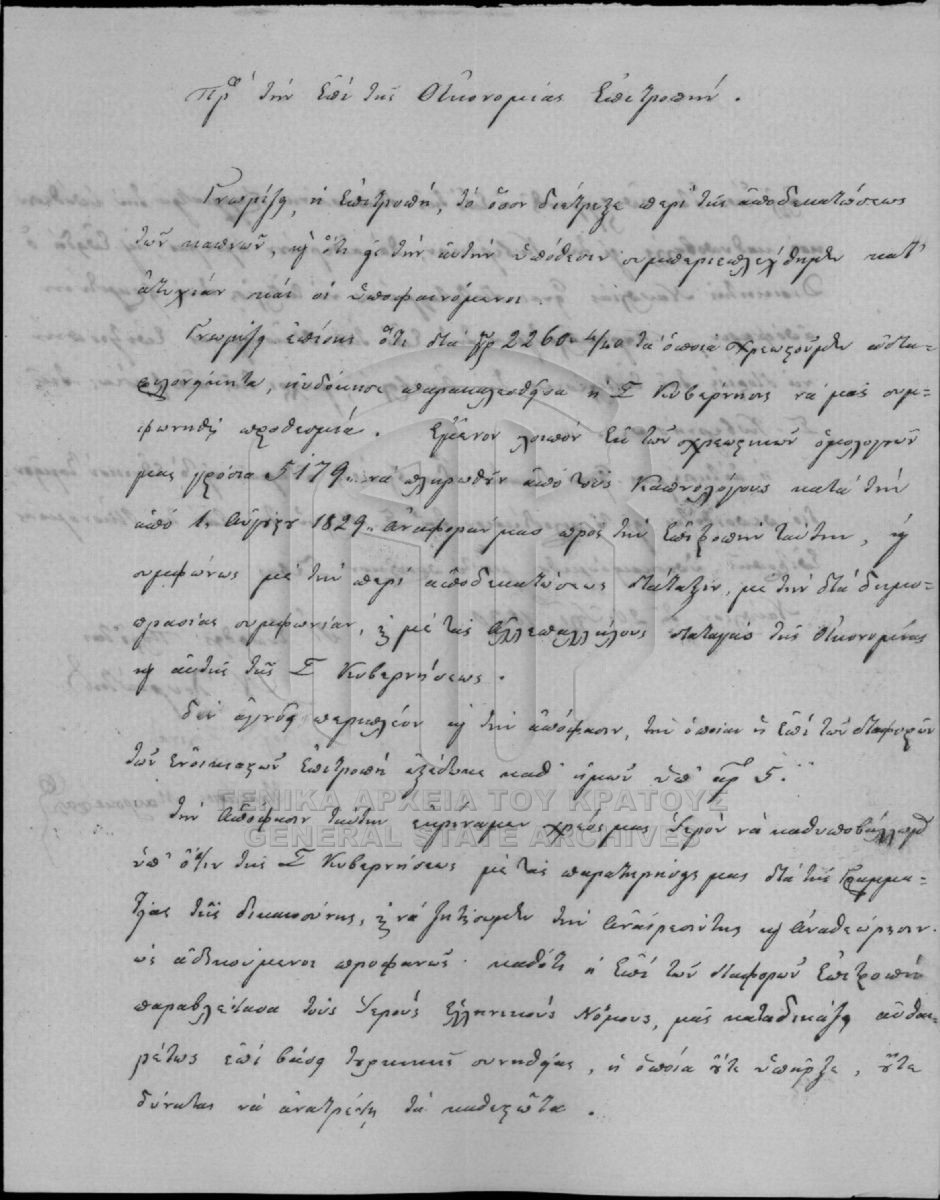 Πρὸς τὴν ἐπὶ τῆς Οἰκονομίας Ἐπιτροπήν.
Γνωρίζει, ἡ Ἐπιτροπή, τὸ ὅσον διέτρεξε περὶ τῆς ἀποδεκατώσεως
τῶν καπνῶν, καὶ ὅτι εἰς τὴν αὐτὴν ὑπόθεσιν συμπεριεπλέχθημεν κατ'
ἀτυχίαν καὶ οἱ ὑποφαινόμενοι.
Γνωρίζει ἐπίσης ὅτι διὰ γρ 2260 4/40 τὰ ὁποῖα χρεωστοῦμεν
εὐδόκησε παρακληθεῖσα ἡ Σ Κυβέρνησις νὰ μᾶς συμ-
φωνηθῇ προθεσμία. Ἔμενον λοιπὸν ἐκ τῶν χρεωστικῶν ὁμολογιῶν
μας γρόσια 5179 νὰ πληρωθοῦν ἀπὸ τοὺς Καπνολόγους κατὰ τὴν
ἀπὸ 1 Αὐγούστου 1829 ἀναφοράν μας πρὸς τὴν Ἐπιτροπὴν ταύτην, καὶ
συμφώνως μὲ τὴν περὶ ἀποδεκατώσεως διάταξιν, μὲ τὴν διὰ δημο-
πρασίας συμφωνίαν, καὶ μὲ τὰς ἀλλεπαλλήλους διαταγὰς τῆς Οἰκονομίας
καὶ αὐτῆς τῆς Σ Κυβερνήσεως.
Δὲν ἀγνοεῖ περιπλέον καὶ τὴν ἀπόφασιν, τὴν ὁποίαν ἡ ἐπὶ τῶν διαφορῶν
τῶν ἐνοικιαστῶν Ἐπιτροπὴ ἐξέδωκε καθ' ἡμῶν ὑπ' ἀρ 5.
Τὴν ἀπόφασιν ταύτην ἐκρίναμεν χρέος μας ἱερὸν νὰ καθυποβάλλωμεν
ὑπ' ὄψιν τῆς Σ Κυβερνήσεως μὲ τὰς παρατηρήσεις μας διὰ τῆς Γραμμα-
τείας τῆς δικαιοσύνης, καὶ νὰ ζητήσωμεν τὴν ἀναίρεσίν της καὶ ἀναθεώρησιν
ὡς ἀδικούμενοι προφανῶς· καθότι ἡ ἐπὶ τῶν διαφορῶν Ἐπιτροπὴ
παραβλέψασα τοὺς ἱεροὺς Ἑλληνικοὺς Νόμους, μᾶς καταδικάζει αὐθαι-
ρέτως ἐπὶ βάσει τουρκικῆς συνηθείας, ἡ ὁποία οὔτε ὑπῆρξε, οὔτε
δύναται νὰ ἀνατρέψῃ τὰ καθεστῶτα.
ΓΕΝΙΚΑ ΑΡΧΕΙΑ ΤΟΥ ΚΡΑΤΟΥΣ
GENERAL STATE ARCHIVES